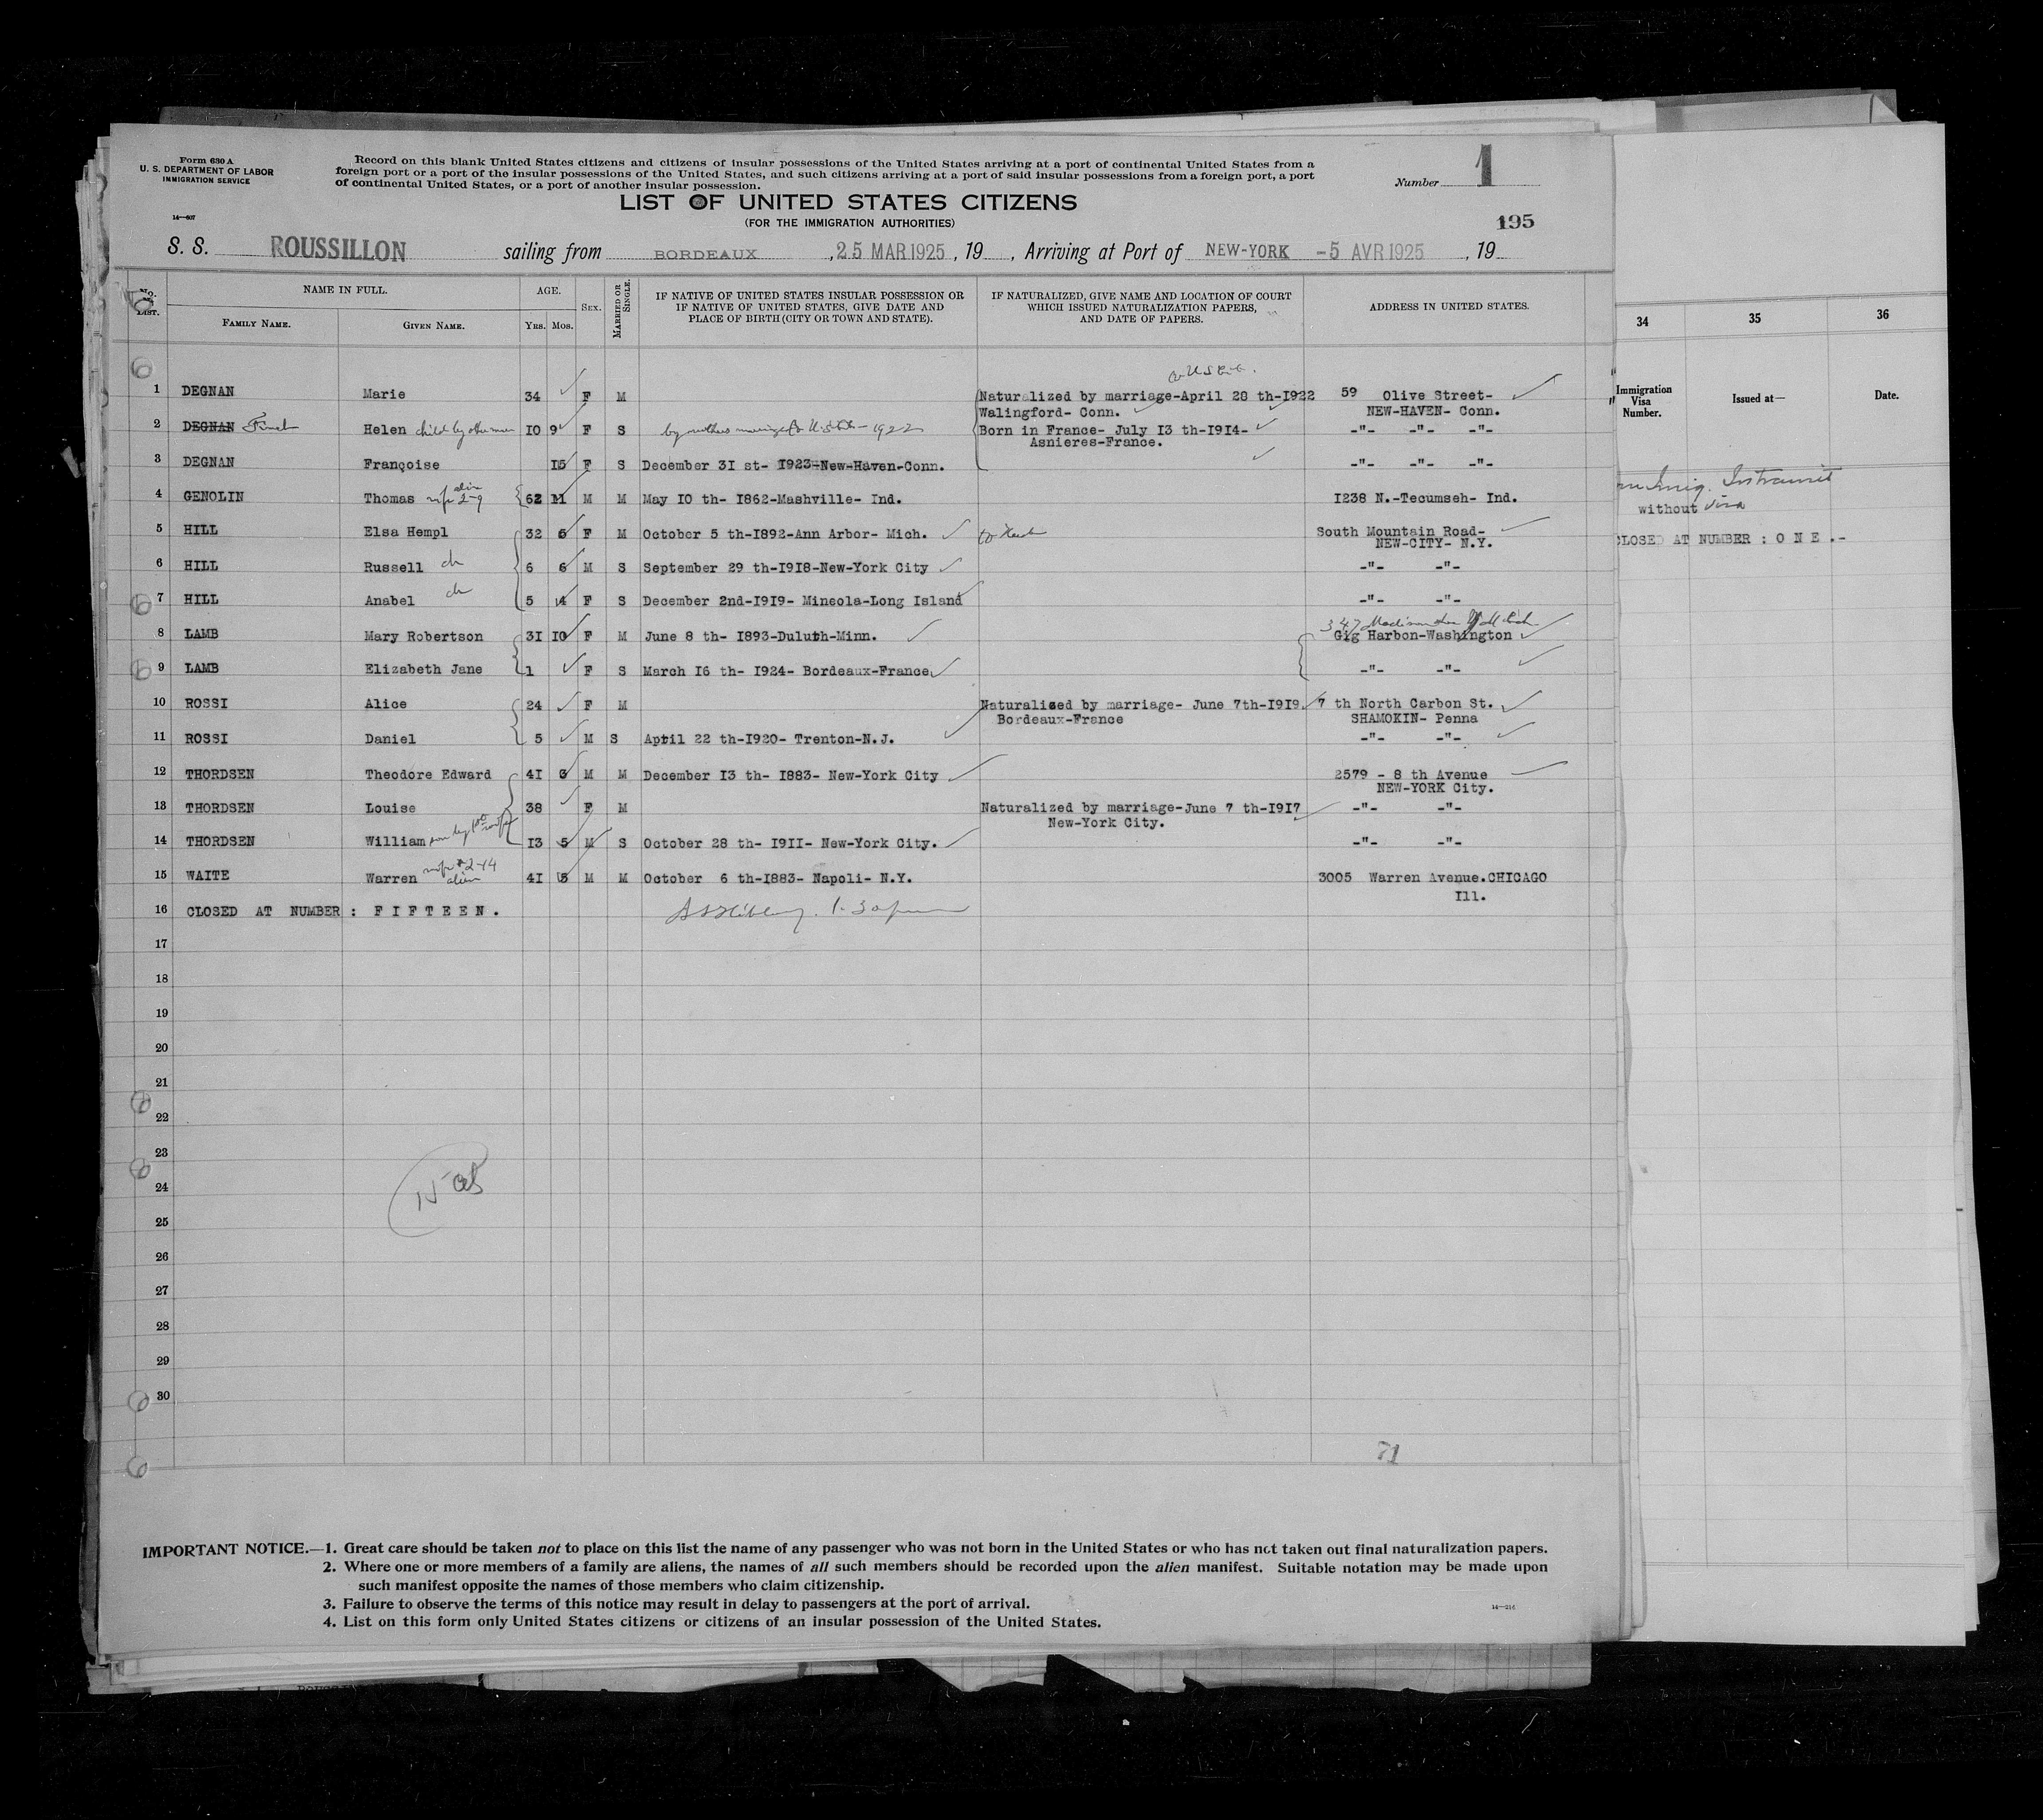 Form 630 A
U. S. DEPARTMENT OF LABOR
IMMIGRATION SERVICE
14—607
Record on this blank United States citizens and citizens of insular possessions of the United States arriving at a port of continental United States from a
foreign port or a port of the insular possessions of the United States, and such citizens arriving at a port of said insular possessions from a foreign port, a port
of continental United States, or a port of another insular possession.
Number 1
LIST OF UNITED STATES CITIZENS
(FOR THE IMMIGRATION AUTHORITIES)
195
S. S. ROUSSILLON sailing from BORDEAUX , 25 MAR 1925 , 19 , Arriving at Port of NEW-YORK -5 AVR 1925 , 19
NO. LIST. NAME IN FULL. AGE. SEX. MARRIED OR SINGLE. IF NATIVE OF UNITED STATES INSULAR POSSESSION OR IF NATIVE OF UNITED STATES, GIVE DATE AND PLACE OF BIRTH (CITY OR TOWN AND STATE). IF NATURALIZED, GIVE NAME AND LOCATION OF COURT WHICH ISSUED NATURALIZATION PAPERS, AND DATE OF PAPERS. ADDRESS IN UNITED STATES.
FAMILY NAME. GIVEN NAME. YRS. MOS.
1 DEGNAN Marie 34 F M Naturalized by marriage-April 28 th-1922 59 Olive Street-
Walingford- Conn. NEW-HAVEN- Conn.
2 DEGNAN Helen child by other man 10 9 F S 1922 Born in France- July 13 th-1914- -"- -"- -"-
Asnieres-France.
3 DEGNAN Françoise 15 F S December 31 st- 1923-New-Haven-Conn. -"- -"- -"-
4 GENOLIN Thomas wife 2-9 alien 62 11 M M May 10 th- 1862-Mashville- Ind. 1238 N.-Tecumseh- Ind.
5 HILL Elsa Hempl 32 6 F M October 5 th-1892-Ann Arbor- Mich. South Mountain Road-
NEW-CITY- N.Y.
6 HILL Russell ch 6 6 M S September 29 th-1918-New-York City -"- -"-
7 HILL Anabel ch 5 4 F S December 2nd-1919- Mineola-Long Island -"- -"-
347 Madison
8 LAMB Mary Robertson 31 10 F M June 8 th- 1893-Duluth-Minn. Gig Harbon-Washington
9 LAMB Elizabeth Jane 1 F S March 16 th- 1924- Bordeaux-France -"- -"-
10 ROSSI Alice 24 F M Naturalized by marriage- June 7th-1919. 7 th North Carbon St.
Bordeaux-France SHAMOKIN- Penna
11 ROSSI Daniel 5 M S April 22 th-1920- Trenton-N.J. -"- -"-
12 THORDSEN Theodore Edward 41 3 M M December 13 th- 1883- New-York City 2579 - 8 th Avenue
NEW-YORK City.
13 THORDSEN Louise 38 F M Naturalized by marriage-June 7 th-1917 -"- -"-
New-York City.
14 THORDSEN William son by 1st wife 13 5 M S October 28 th- 1911- New-York City. -"- -"-
15 WAITE Warren wife 2-14 alien 41 5 M M October 6 th-1883- Napoli- N.Y. 3005 Warren Avenue.CHICAGO
Ill.
16 CLOSED AT NUMBER : F I F T E E N .
17
18
19
20
21
22
23
24
25
26
27
28
29
30
71
IMPORTANT NOTICE.—1. Great care should be taken not to place on this list the name of any passenger who was not born in the United States or who has not taken out final naturalization papers.
2. Where one or more members of a family are aliens, the names of all such members should be recorded upon the alien manifest. Suitable notation may be made upon
such manifest opposite the names of those members who claim citizenship.
3. Failure to observe the terms of this notice may result in delay to passengers at the port of arrival.
4. List on this form only United States citizens or citizens of an insular possession of the United States.
14—214
34 35 36
Immigration Visa Number. Issued at— Date.
Intransit
without visa
CLOSED AT NUMBER : O N E .-